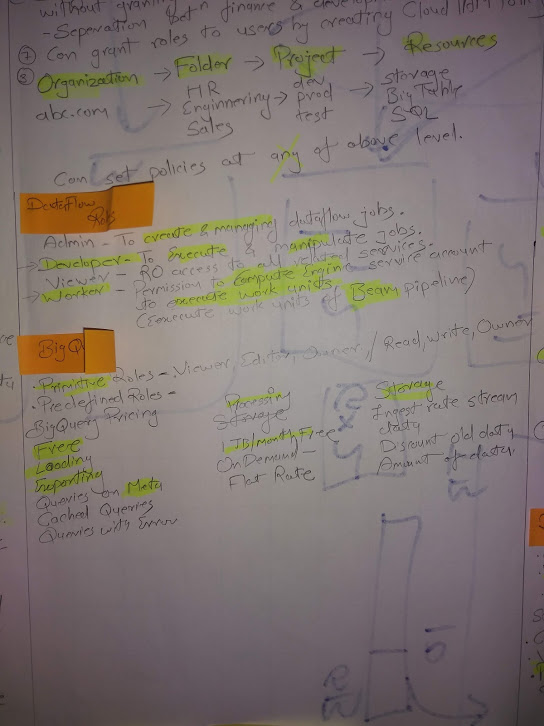 without
- Seperation betn finance &
⑦ Can grant roles to users by creating Cloud IAM
⑧ Organization → Folder → Project → Resources
abc.com → HR Enginnering Sales → dev prod test → Storage BigTable SQL
Can set policies at any of above level.
DataFlow Roles
Admin - To create & managing dataflow jobs.
→ Developer - To Execute & manipulate jobs.
Viewer - RO access to all related services.
→ Worker - Permission to Compute Engine service account
to execute work units
(execute work units of Beam pipeline)
BigQ
• Primitive Roles - Viewer, Editor, Owner / Read, Write, Owner
• Predefined Roles -
BigQuery Pricing
Free
Loading
Exporting
Queries on Meta
Cached Queries
Queries with Error
Processing
Storage
1TB/month Free
OnDemand -
Flat Rate
Storage
Ingest rate stream
data
Discount old data
Amount of data